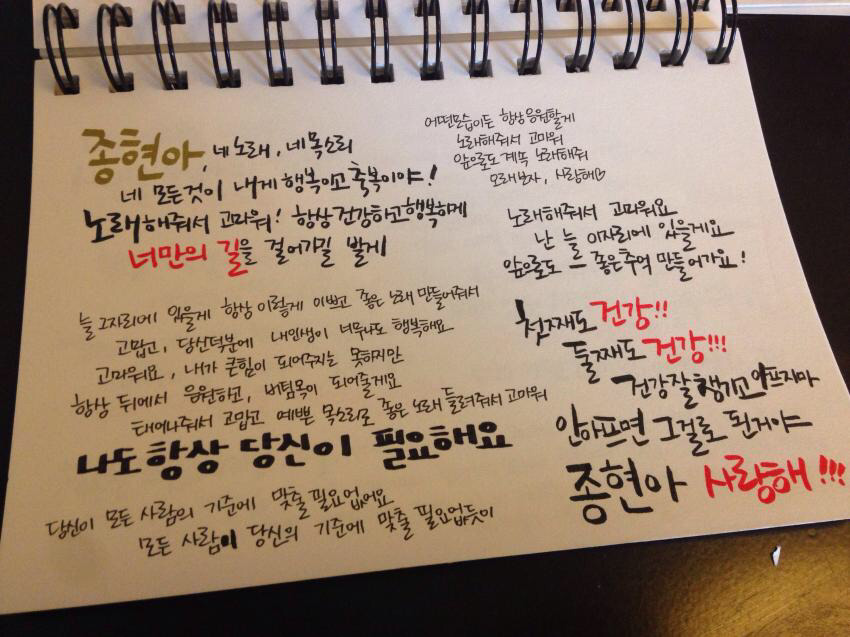 종현아, 네 노래, 네 목소리
네 모든것이 내게 행복이고 축복이야!
노래해줘서 고마워! 항상 건강하고 행복하게
너만의 길을 걸어가길 발게
늘 그자리에 있을게 항상 이렇게 이쁘고 좋은 노래 만들어줘서
고맙고, 당신덕분에 내인생이 너무나도 행복해요
고마워요, 내가 큰힘이 되어주지는 못하지만
항상 뒤에서 응원하고, 버팀목이 되어줄게요
태어나줘서 고맙고 예쁜 목소리로 좋은 노래 들려줘서 고마워
나도 항상 당신이 필요해요
당신이 모든 사람의 기준에 맞출 필요없어요
모든 사람이 당신의 기준에 맞출 필요없듯이
어떤모습이든 항상 응원할게
노래해줘서 고마워
앞으로도 계속 노래해줘
오래보자, 사랑해♡
노래해줘서 고마워요
난 늘 이자리에 있을게요
앞으로도 ㅡ 좋은추억 만들어가요!
첫째도 건강!!
둘째도 건강!!!
건강잘챙기고 아프지마
안아프면 그걸로 된거야
종현아 사랑해!!!